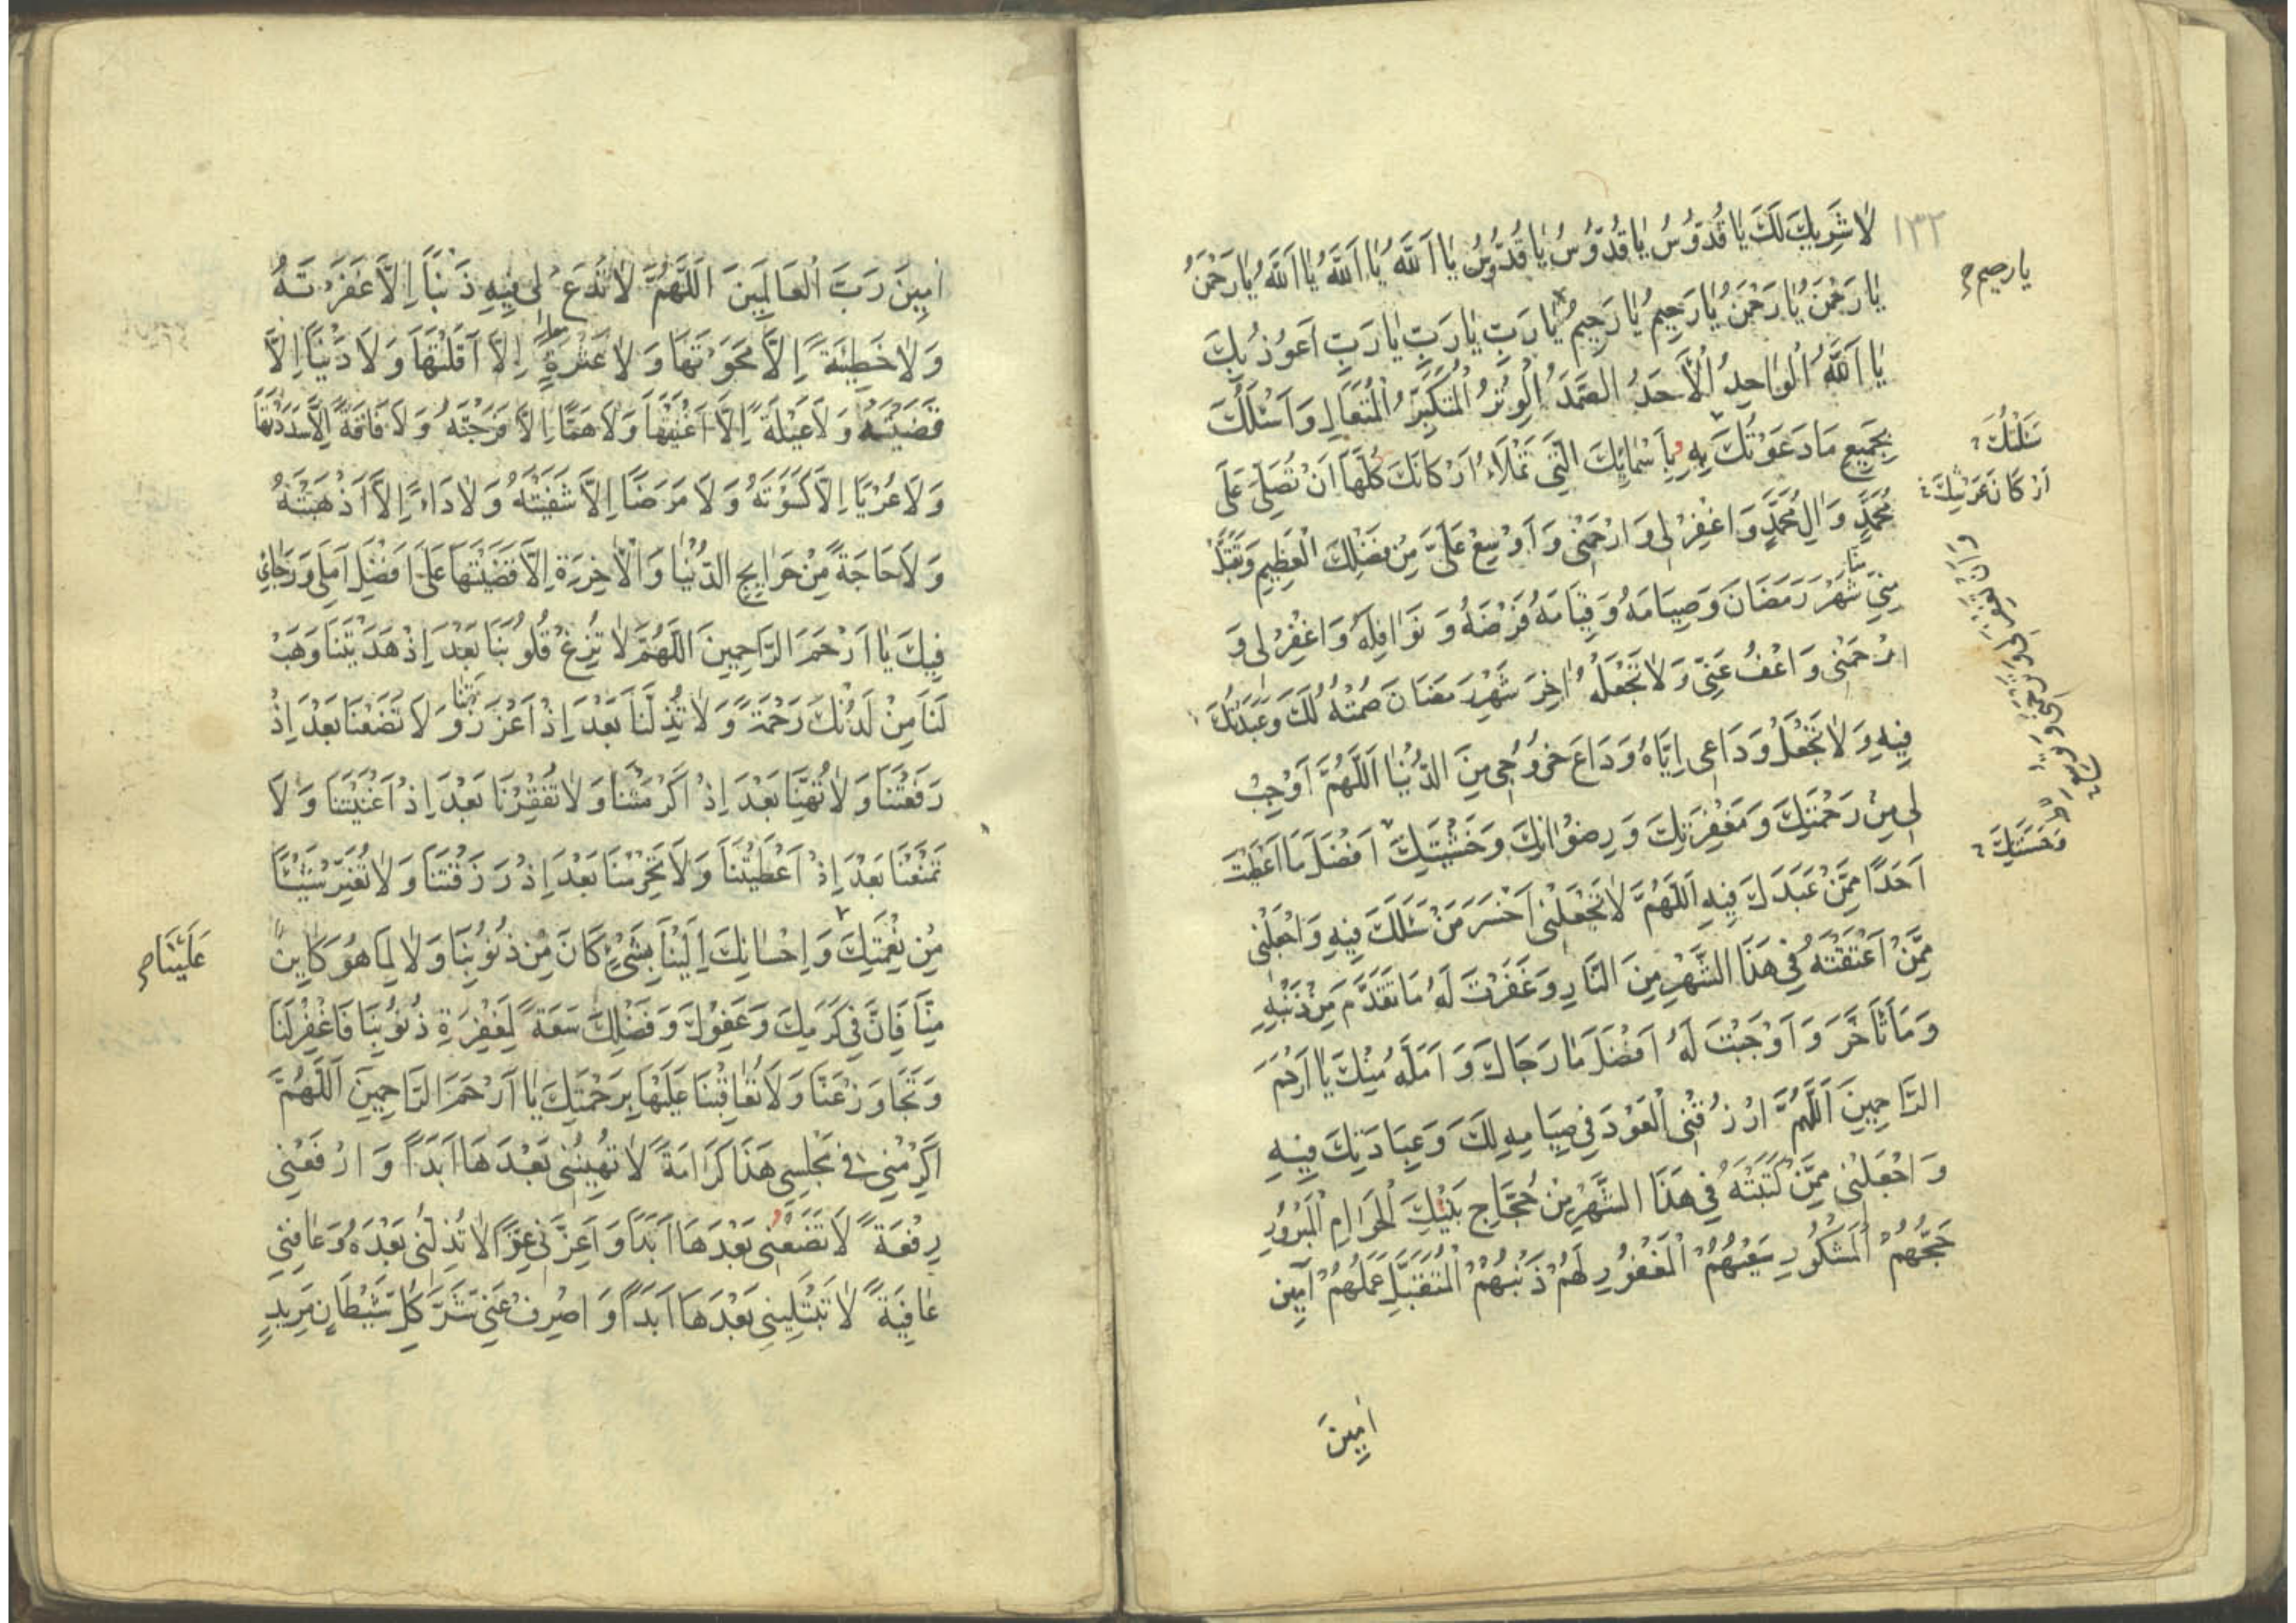 ١٣٢
لاٰ شَرِيكَ لَكَ يٰا قُدُّوسُ يٰا قُدُّوسُ يٰا قُدُّوسُ يٰا اَللّٰهُ يٰا اَللّٰهُ يٰا اَللّٰهُ يٰا رَحْمٰنُ
يٰا رَحْمٰنُ يٰا رَحْمٰنُ يٰا رَحِيمُ يٰا رَحِيمُ يٰا رَبِّ يٰا رَبِّ يٰا رَبِّ اَعُوذُ بِكَ
يا رحيم صح
يٰا اَللّٰهُ الْوٰاحِدُ الْاَحَدُ الصَّمَدُ الْوِتْرُ الْمُتَكَبِّرُ الْمُتَعَالِ وَاَسْئَلُكَ
بِجَمِيعِ مَا دَعَوْتُكَ بِهِ وبِاَسْمٰائِكَ الَّتِي تَمْلَاءُ اَرْكَانَكَ كُلَّهَا اَنْ تُصَلِّيَ عَلَى
سَئَلْتُكَ
اَرْكَانَ عَرْشِكَ
مُحَمَّدٍ وَاٰلِ مُحَمَّدٍ وَاغْفِرْ لِي وَارْحَمْنِي وَاَوْسِعْ عَلَيَّ مِنْ فَضْلِكَ الْعَظِيمِ وَتَقَبَّلْ
مِنِّي شَهْرَ رَمَضَانَ وَصِيَامَهُ وَقِيَامَهُ فَرْضَهُ وَنَوَافِلَهُ وَاغْفِرْ لِي وَ
ارْحَمْنِي وَاعْفُ عَنِّي وَلاٰ تَجْعَلْهُ اٰخِرَ شَهْرِ رَمَضَانَ صُمْتُهُ لَكَ وَعَبَدْتُكَ
فِيهِ وَلاٰ تَجْعَلْ وَدَاعِي اِيَّاهُ وَدَاعَ خُرُوجِي مِنَ الدُّنْيٰا اَللّٰهُمَّ اَوْجِبْ
لِي مِنْ رَحْمَتِكَ وَمَغْفِرَتِكَ وَرِضْوٰانِكَ وَخَشْيَتِكَ اَفْضَلَ مَا اَعْطَيْتَ
وَخَشْيَتِكَ
اَحَدًا مِمَّنْ عَبَدَكَ فِيهِ اَللّٰهُمَّ لاٰ تَجْعَلْنِي اَخْسَرَ مَنْ سَئَلَكَ فِيهِ وَاجْعَلْنِي
مِمَّنْ اَعْتَقْتَهُ فِي هَذَا الشَّهْرِ مِنَ النَّارِ وَغَفَرْتَ لَهُ مَا تَقَدَّمَ مِنْ ذَنْبِهِ
وَمَا تَاَخَّرَ وَاَوْجَبْتَ لَهُ اَفْضَلَ مَا رَجَاكَ وَاَمَلَهُ مِنْكَ يٰا اَرْحَمَ
الرَّاحِمِينَ اَللّٰهُمَّ ارْزُقْنِي الْعَوْدَ فِي صِيَامِهِ لَكَ وَعِبَادَتِكَ فِيهِ
وَاجْعَلْنِي مِمَّنْ كَتَبْتَهُ فِي هَذَا الشَّهْرِ مِنْ حُجَّاجِ بَيْتِكَ الْحَرَامِ الْمَبْرُورِ
حَجُّهُمْ الْمَشْكُورِ سَعْيُهُمْ الْمَغْفُورِ لَهُمْ ذَنْبُهُمْ الْمُتَقَبَّلِ عَمَلُهُمْ اٰمِينَ
اٰمِينَ
اٰمِينَ رَبَّ الْعَالَمِينَ اَللّٰهُمَّ لاٰ تَدَعْ لِي فِيهِ ذَنْبًا اِلَّا غَفَرْتَهُ
وَلاٰ خَطِيئَةً اِلَّا مَحَوْتَهَا وَلاٰ عَثْرَةً اِلَّا اَقَلْتَهَا وَلَا دَيْنًا اِلَّا
قَضَيْتَهُ وَلَا عَيْلَةً اِلَّا اَغْنَيْتَهَا وَلَا هَمًّا اِلَّا فَرَّجْتَهُ وَلَا فَاقَةً اِلَّا سَدَدْتَهَا
وَلَا عُرْيًا اِلَّا كَسَوْتَهُ وَلَا مَرَضًا اِلَّا شَفَيْتَهُ وَلَا دَاءً اِلَّا اَذْهَبْتَهُ
وَلَا حَاجَةً مِنْ حَوَايِجِ الدُّنْيٰا وَالْاٰخِرَةِ اِلَّا قَضَيْتَهَا عَلَى اَفْضَلِ اَمَلِي وَرَجَائِي
فِيكَ يٰا اَرْحَمَ الرَّاحِمِينَ اَللّٰهُمَّ لاٰ تُزِغْ قُلُوبَنَا بَعْدَ اِذْ هَدَيْتَنَا وَهَبْ
لَنَا مِنْ لَدُنْكَ رَحْمَةً وَلاٰ تُذِلَّنَا بَعْدَ اِذْ اَعْزَزْتَنَا وَلَا تَضَعْنَا بَعْدَ اِذْ
رَفَعْتَنَا وَلاٰ تُهِنَّا بَعْدَ اِذْ اَكْرَمْتَنَا وَلاٰ تُفْقِرْنَا بَعْدَ اِذْ اَغْنَيْتَنَا وَلَا
تَمْنَعْنَا بَعْدَ اِذْ اَعْطَيْتَنَا وَلَا تَحْرِمْنَا بَعْدَ اِذْ رَزَقْتَنَا وَلاٰ تُغَيِّرْ شَيْئًا
مِنْ نِعْمَتِكَ وَاِحْسٰانِكَ اِلَيْنَا بِشَيْءٍ كَانَ مِنْ ذُنُوبِنَا وَلاٰ لِمَا هُوَ كَايِنٌ
عَلَيْنَا صح
مِنَّا فَاِنَّ فِي كَرَمِكَ وَعَفْوِكَ وَفَضْلِكَ سَعَةً لِمَغْفِرَةِ ذُنُوبِنَا فَاغْفِرْ لَنَا
وَتَجَاوَزْ عَنَّا وَلَا تُعَاقِبْنَا عَلَيْهَا بِرَحْمَتِكَ يٰا اَرْحَمَ الرَّاحِمِينَ اَللّٰهُمَّ
اَكْرِمْنِي فِي مَجْلِسِي هَذَا كَرَامَةً لاٰ تُهِينُنِي بَعْدَهَا اَبَدًا وَارْفَعْنِي
رِفْعَةً لَا تَضَعُنِي بَعْدَهَا اَبَدًا وَاَعِزَّنِي عِزًّا لاٰ تُذِلُّنِي بَعْدَهُ وَعَافِنِي
عٰافِيَةً لاٰ تَبْتَلِينِي بَعْدَهَا اَبَدًا وَاصْرِفْ عَنِّي شَرَّ كُلِّ شَيْطَانٍ مَرِيدٍ